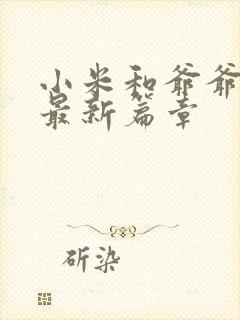 小米和爷爷
最新篇章
斫染